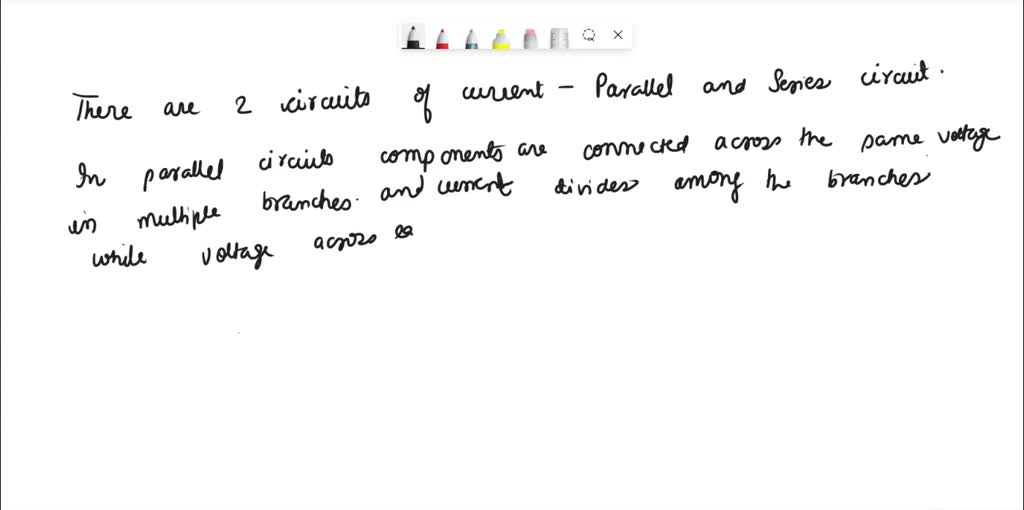 There are 2 circuits of current – Parallel and Series circuit.
In parallel circuits components are connected across the same voltage
in multiple branches. and current divides among the branches
while voltage across ea